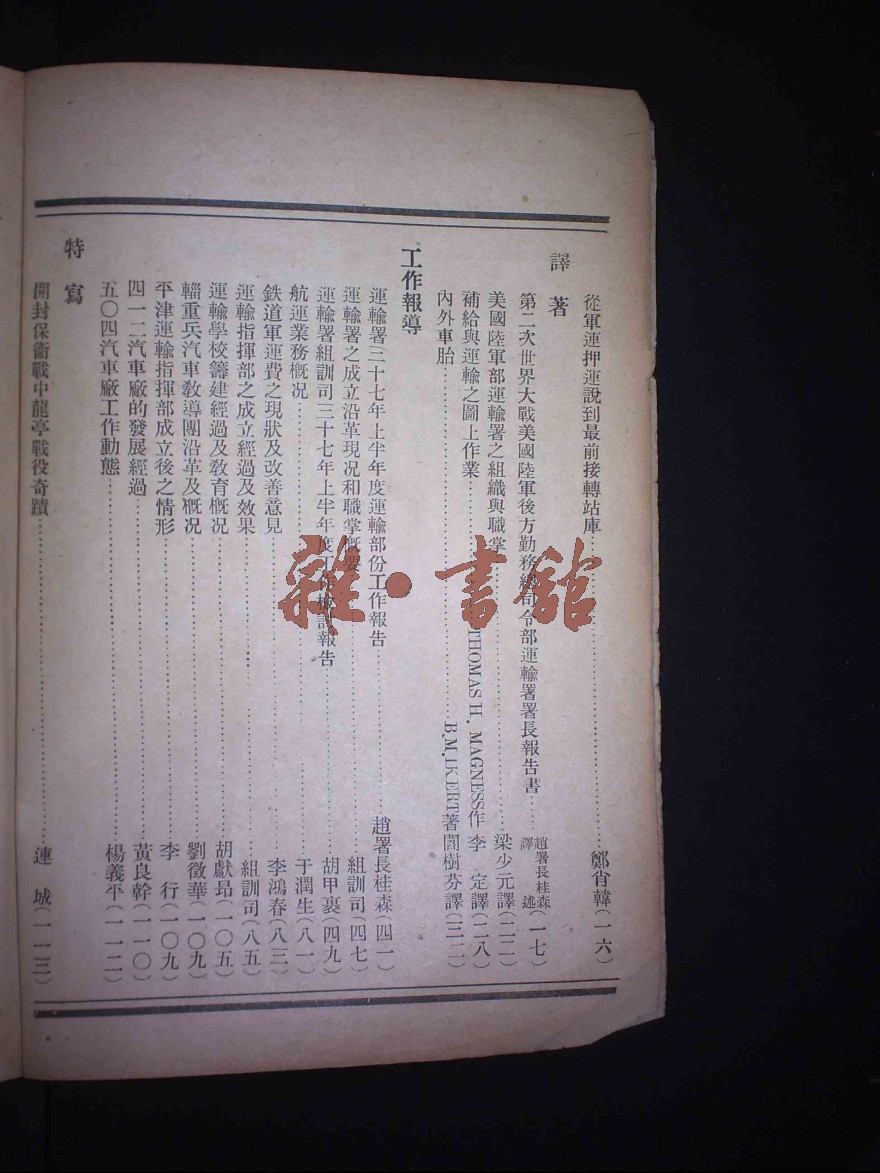 從軍運押運說到最前接轉站庫……鄭省韓(一六)
譯著
第二次世界大戰美國陸軍後方勤務總司令部運輸署署長報告書……趙署長桂森譯述(一七)
美國陸軍部運輸署之組織與職掌……梁少元譯(二二)
補給與運輸之圖上作業……THOMAS H. MAGNESS作 李定譯(二八)
內外車胎……B.M.IKERT著 閻樹芬譯(三二)
工作報導
運輸署三十七年上半年度運輸部份工作報告……趙署長桂森(四一)
運輸署之成立沿革現况和職掌概要……組訓司(四七)
運輸署組訓司三十七年上半年度工作檢討報告……胡甲裏(四九)
航運業務概况……于潤生(八一)
鉄道軍運費之現狀及改善意見……李鴻春(八三)
運輸指揮部之成立經過及效果……組訓司(八五)
運輸學校籌建經過及敎育槪况……胡獻昂(一〇五)
輜重兵汽車敎導團沿革及槪况……劉徵華(一〇九)
平津運輸指揮部成立後之情形……李行(一〇九)
四一二汽車廠的發展經過……黃良幹(一一〇)
五〇四汽車廠工作動態……楊義平(一一二)
特寫
開封保衞戰中龍亭戰役奇蹟……連城(一一三)
雜·書館